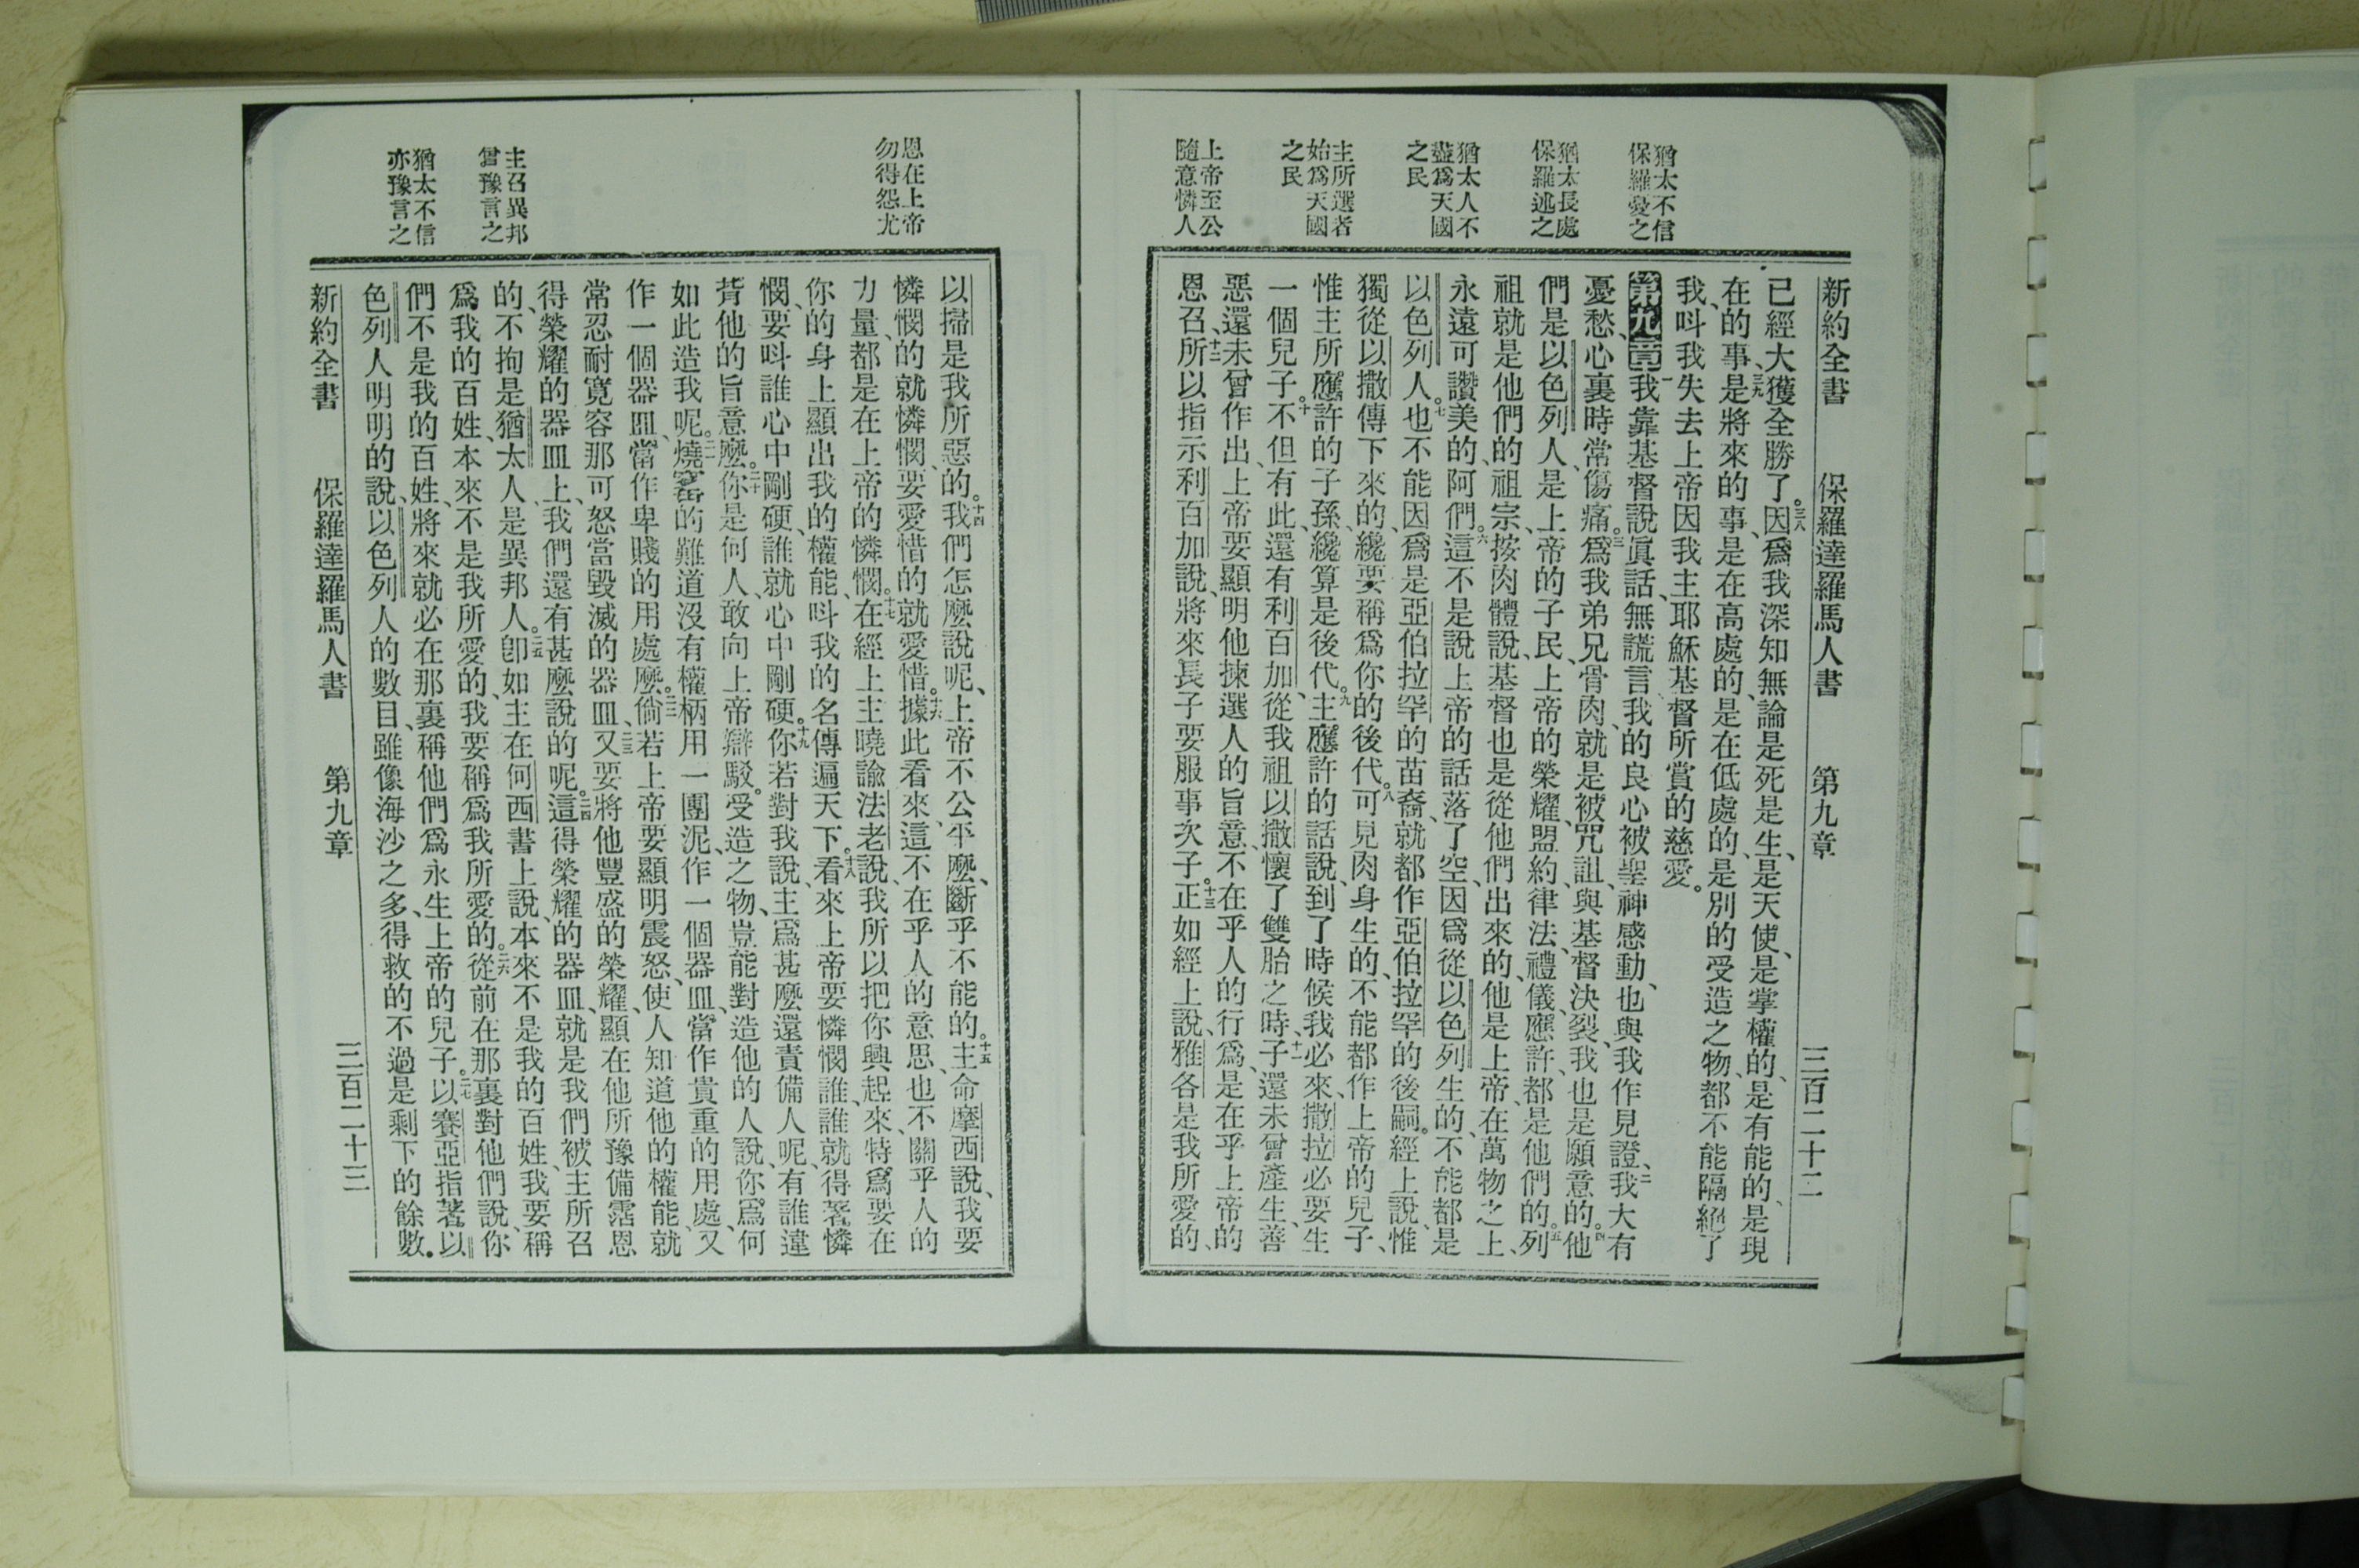 新約全書　保羅達羅馬人書　第九章　三百二十二
猶太不信
保羅憂之
猶太長處
保羅述之
猶太人不
盡爲天國
之民
主所選者
始爲天國
之民
上帝至公
隨意憐人
已經大獲全勝了。三八因爲我深知無論是死是生、是天使、是掌權的、是有能的、是現
在的事、三九是將來的事、是在高處的、是在低處的、是別的受造之物、都不能隔絕了
我、呌我失去上帝因我主耶穌基督所賞的慈愛。
第九章一我靠基督說眞話、無謊言、我的良心被聖神感動、也與我作見證、二我大有
憂愁、心裏時常傷痛。三爲我弟兄骨肉、就是被咒詛、與基督決裂、我也是願意的。四他
們是以色列人、是上帝的子民、上帝的榮耀、盟約、律法、禮儀、應許、都是他們的。五列
祖就是他們的祖宗、按肉體說、基督也是從他們出來的、他是上帝、在萬物之上、
永遠可讚美的、阿們。六這不是說上帝的話落了空、因爲從以色列生的、不能都是
以色列人。七也不能因爲是亞伯拉罕的苗裔、就都作亞伯拉罕的後嗣。經上說、惟
獨從以撒傳下來的、纔要稱爲你的後代。八可見肉身生的、不能都作上帝的兒子、
惟主所應許的子孫、纔算是後代。九主應許的話說、到了時候我必來、撒拉必要生
一個兒子。十不但有此、還有利百加、從我祖以撒懷了雙胎之時、十一子還未曾產生、善
惡還未曾作出、上帝要顯明他揀選人的旨意、不在乎人的行爲、是在乎上帝的
恩召、十二所以指示利百加說、將來長子要服事次子。十三正如經上說、雅各是我所愛的、
恩在上帝
勿得怨尤
主召異邦
曾豫言之
猶太不信
亦豫言之
以掃是我所惡的。十四我們怎麼說呢、上帝不公平麼、斷乎不能的。十五主命摩西說、我要
憐憫的就憐憫、要愛惜的就愛惜。十六據此看來、這不在乎人的意思、也不關乎人的
力量、都是在上帝的憐憫。十七在經上主曉諭法老說、我所以把你興起來、特爲要在
你的身上顯出我的權能、呌我的名傳遍天下。十八看來上帝要憐憫誰、誰就得著憐
憫、要呌誰心中剛硬、誰就心中剛硬。十九你若對我說、主爲甚麼還責備人呢、有誰違
背他的旨意麼。二十你是何人、敢向上帝辯駁。受造之物、豈能對造他的人說、你爲何
如此造我呢。二一燒窰的難道沒有權柄用一團泥、作一個器皿、當作貴重的用處、又
作一個器皿、當作卑賤的用處麼。二二倘若上帝要顯明震怒、使人知道他的權能、就
常忍耐寬容那可怒當毀滅的器皿、二三又要將他豐盛的榮耀、顯在他所豫備霑恩
得榮耀的器皿上、我們還有甚麼說的呢。二四這得榮耀的器皿、就是我們被主所召
的、不拘是猶太人、是異邦人。二五卽如主在何西書上說、本來不是我的百姓、我要稱
爲我的百姓、本來不是我所愛的、我要稱爲我所愛的。二六從前在那裏對他們說、你
們不是我的百姓、將來就必在那裏稱他們爲永生上帝的兒子。二七以賽亞指著以
色列人明明的說、以色列人的數目、雖像海沙之多、得救的不過是剩下的餘數。
新約全書　保羅達羅馬人書　第九章　三百二十三